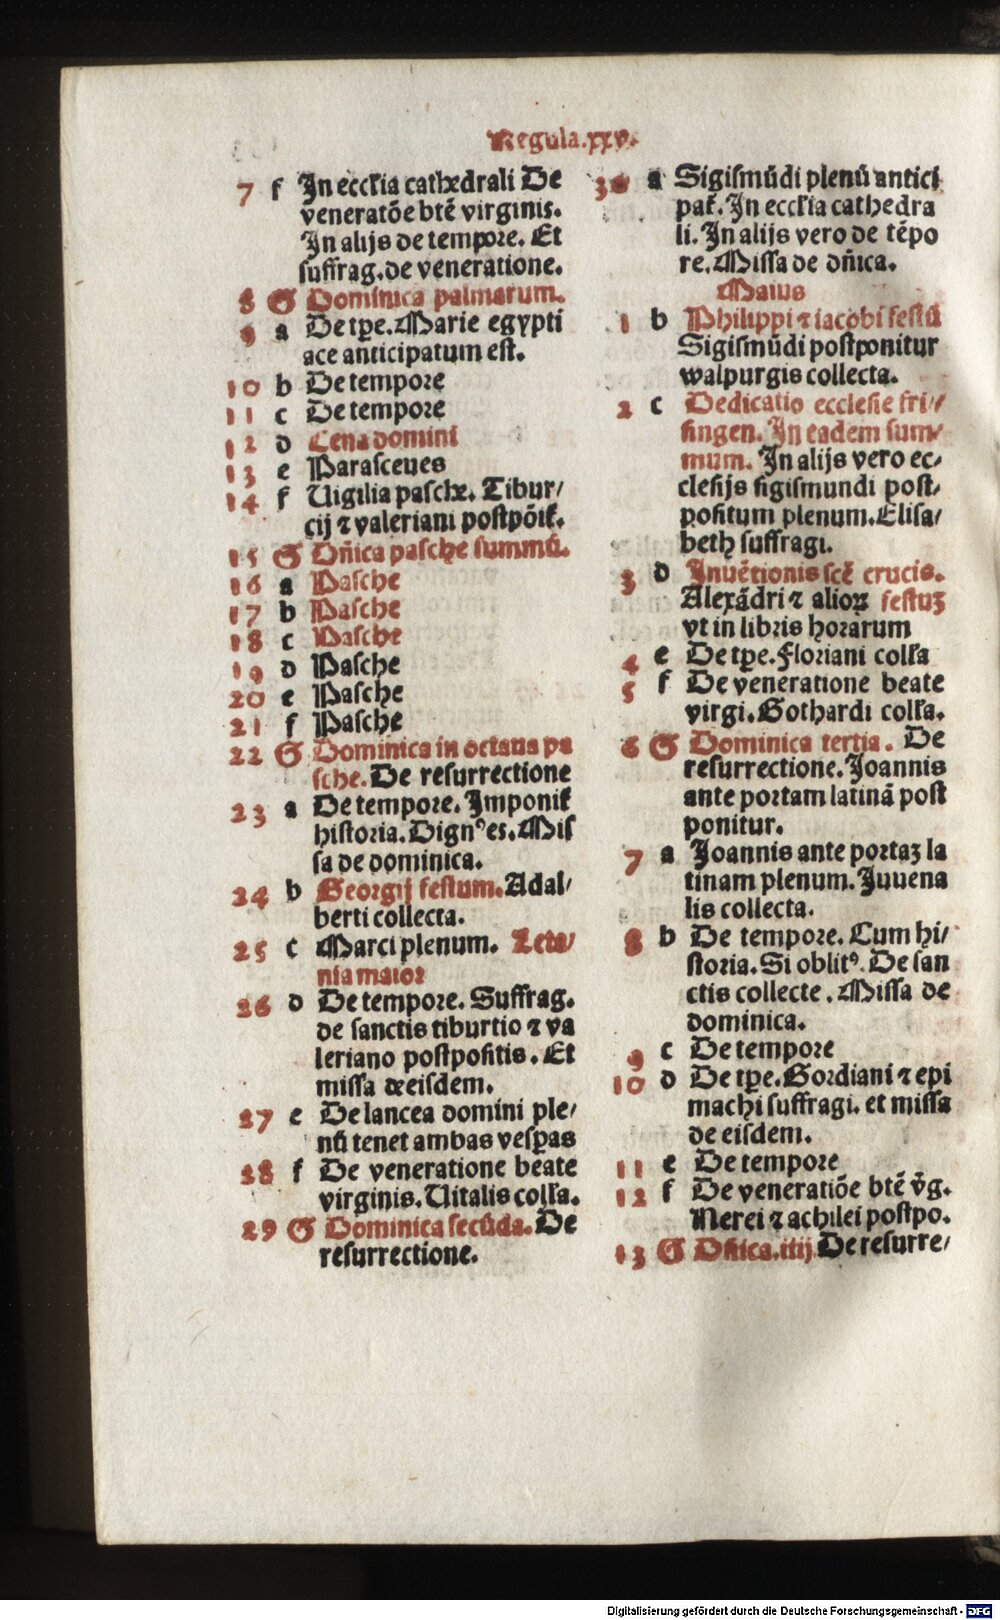 Regula.xxv.
7 f In eccľia cathedrali De
veneratōe btē virginis.
In alijs de tempore. Et
suffrag. de veneratione.
8 G Dominica palmarum.
9 a De tp̄e. Marie egypti
ace anticipatum est.
10 b De tempore
11 c De tempore
12 d Cena domini
13 e Parasceues
14 f Uigilia pasche. Tibur/
cij ⁊ valeriani postpōit̄.
15 G Dn̄ica pasche summū.
16 a Pasche
17 b Pasche
18 c Pasche
19 d Pasche
20 e Pasche
21 f Pasche
22 G Dominica in octaua pa
sche. De resurrectione
23 a De tempore. Imponit̄
historia. Dignꝰ es. Mis
sa de dominica.
24 b Georgij festum. Adal/
berti collecta.
25 c Marci plenum. Leta/
nia maior
26 d De tempore. Suffrag.
de sanctis tiburtio ⁊ va
leriano postpositis. Et
missa de eisdem.
27 e De lancea domini ple/
nū tenet ambas vesꝑas
28 f De veneratione beate
virginis. Uitalis colľa.
29 G Dominica secūda. De
resurrectione.
30 a Sigismūdi plenū antici
pat̄. In eccľia cathedra
li. In alijs vero de tēpo
re. Missa de dn̄ica.
Maius
1 b Philippi ⁊ iacobi festū
Sigismūdi postponitur
walpurgis collecta.
2 c Dedicatio ecclesie fri//
singen. In eadem sum/
mum. In alijs vero ec/
clesijs sigismundi post/
positum plenum. Elisa/
beth suffragi.
3 d Inuētionis scē crucis.
Alexādri ⁊ alioꝝ festuꝫ
vt in libris horarum
4 e De tp̄e. Floriani colľa
5 f De veneratione beate
virgi. Gothardi colľa.
6 G Dominica tertia. De
resurrectione. Joannis
ante portam latinā post
ponitur.
7 a Joannis ante portaꝫ la
tinam plenum. Juuena
lis collecta.
8 b De tempore. Cum hi/
storia. Si oblitꝰ. De san
ctis collecte. Missa de
dominica.
9 c De tempore
10 d De tp̄e. Gordiani ⁊ epi
machi suffragi. et missa
de eisdem.
11 e De tempore
12 f De veneratiōe btē v̄g.
Nerei ⁊ achilei postpo.
13 G Dn̄ica. iiij De resurre/
Digitalisierung gefördert durch die Deutsche Forschungsgemeinschaft - DFG